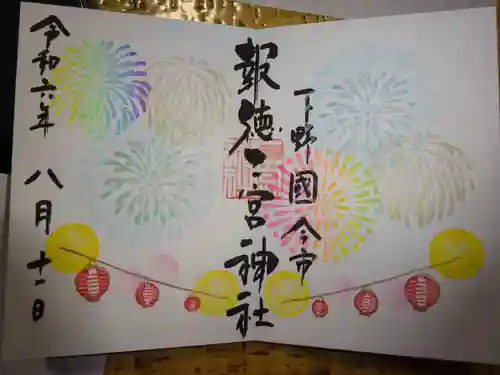 下野國今市
報徳二宮神社
令和六年
八月十一日